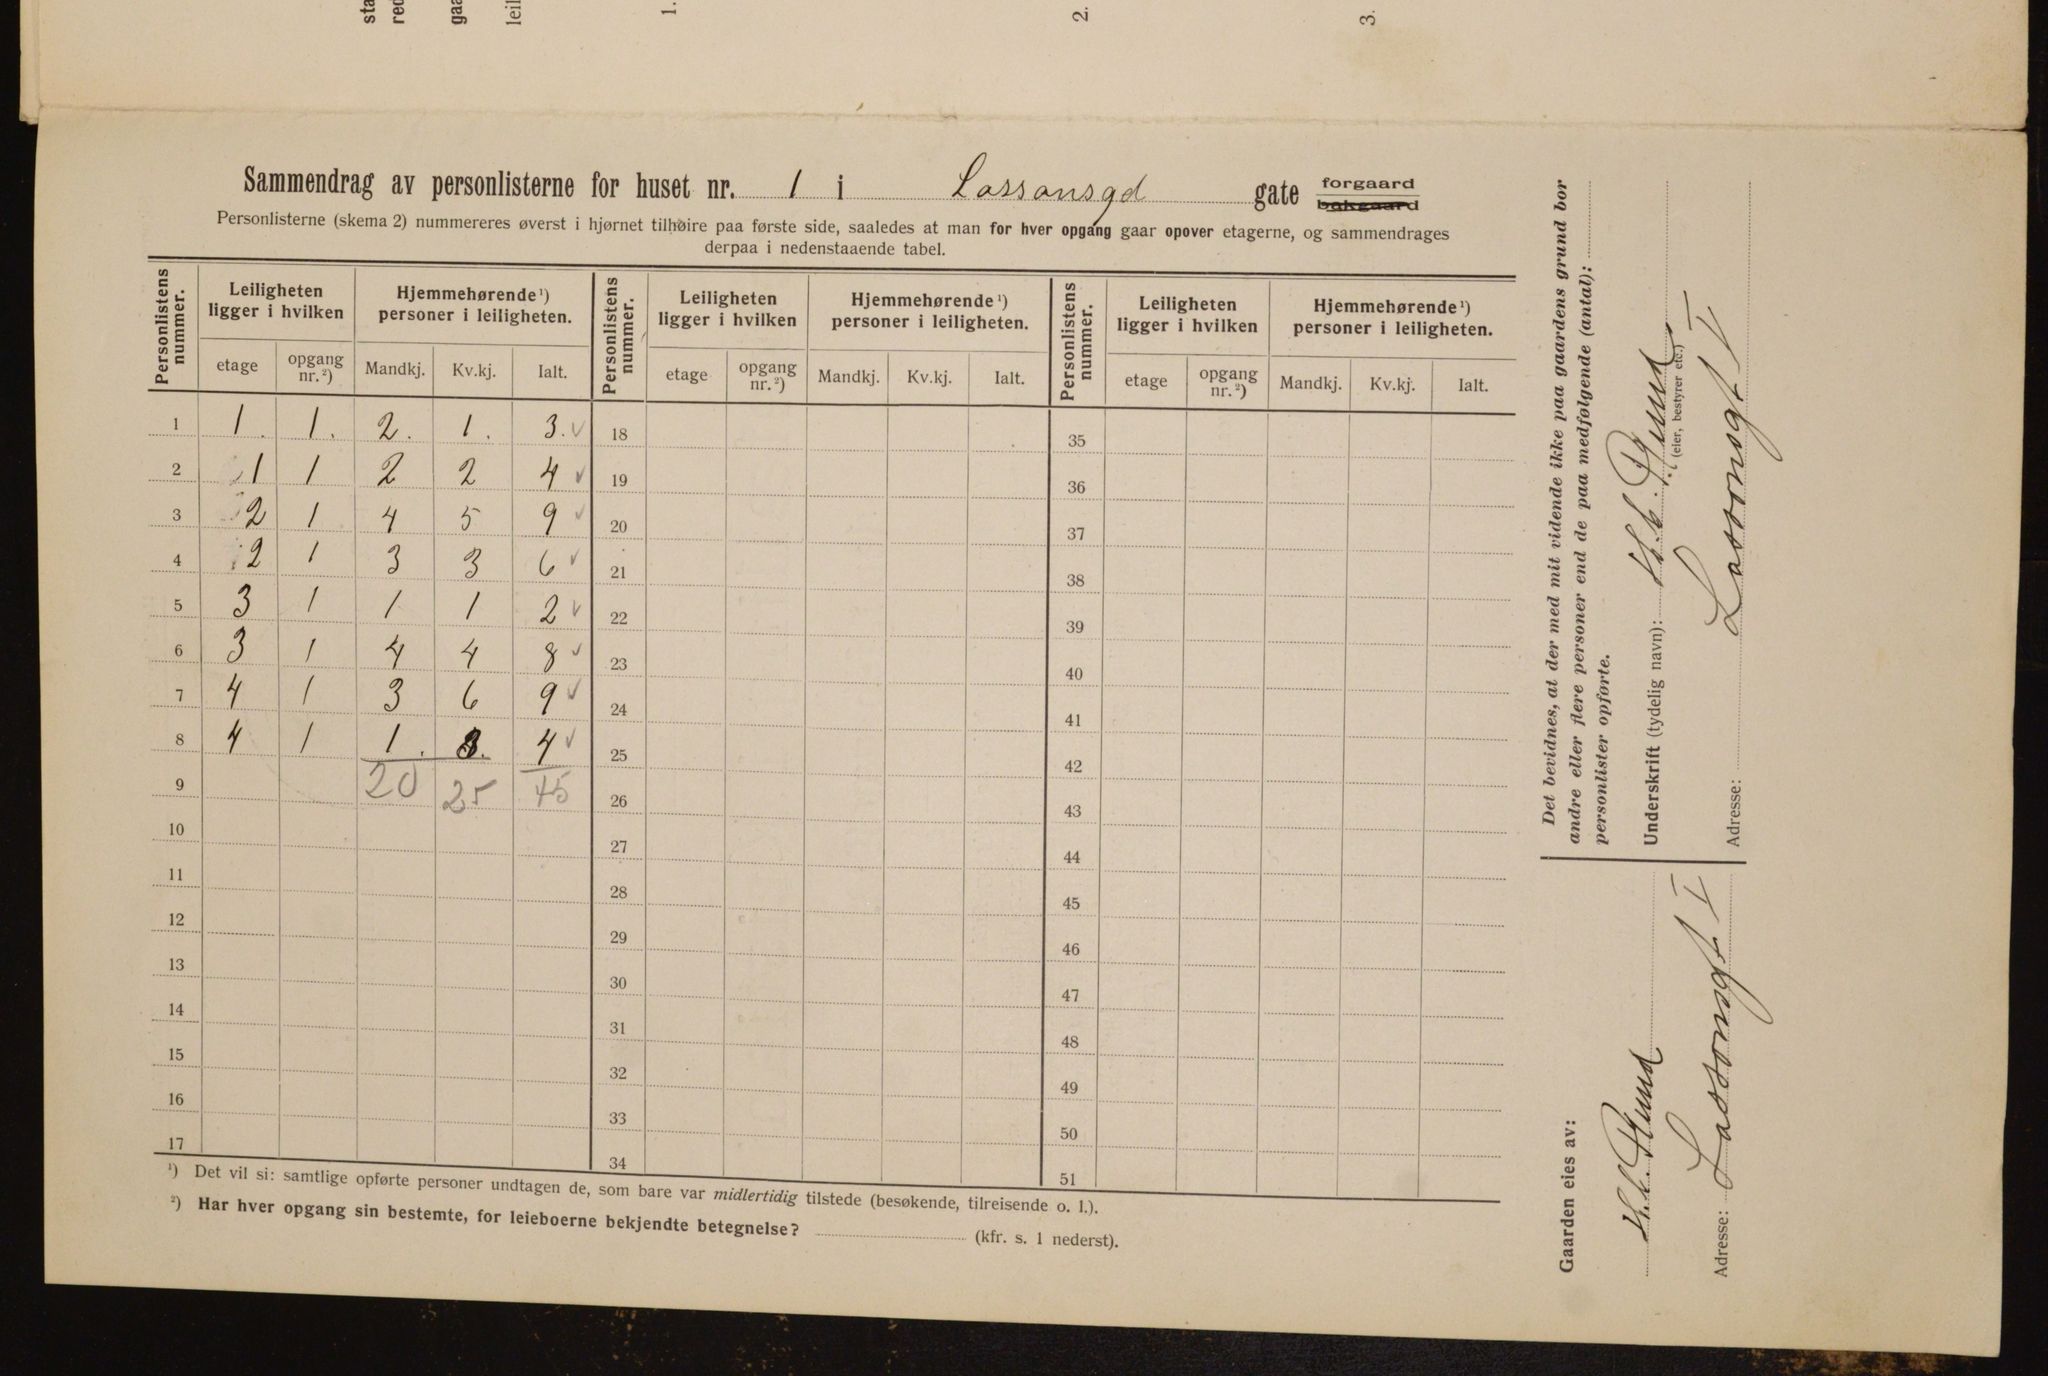 sta
red
gaa
leil
1.
2.
3.
Sammendrag av personlisterne for huset nr. 1 i Lassonsgd gate forgaard
bakgaard
Personlisterne (skema 2) nummereres øverst i hjørnet tilhøire paa første side, saaledes at man for hver opgang gaar opover etagerne, og sammendrages
derpaa i nedenstaaende tabel.
Personlistens nummer. Leiligheten ligger i hvilken Hjemmehørende ¹) personer i leiligheten. Personlistens nummer. Leiligheten ligger i hvilken Hjemmehørende ¹) personer i leiligheten. Personlistens nummer. Leiligheten ligger i hvilken Hjemmehørende ¹) personer i leiligheten.
etage opgang nr. ²) Mandkj. Kv.kj. Ialt. etage opgang nr. ²) Mandkj. Kv.kj. Ialt. etage opgang nr. ²) Mandkj. Kv.kj. Ialt.
1 1. 1. 2. 1. 3. ✓ 18 35
2 1 1 2 2 4 ✓ 19 36
3 2 1 4 5 9 ✓ 20 37
4 2 1 3 3 6 ✓ 21 38
5 3 1 1 1 2 ✓ 22 39
6 3 1 4 4 8 ✓ 23 40
7 4 1 3 6 9 ✓ 24 41
8 4 1 1. 3. 4 ✓ 25 42
9 20 25 45 26 43
10 27 44
11 28 45
12 29 46
13 30 47
14 31 48
15 32 49
16 33 50
17 34 51
¹) Det vil si: samtlige opførte personer undtagen de, som bare var midlertidig tilstede (besøkende, tilreisende o. l.).
²) Har hver opgang sin bestemte, for leieboerne bekjendte betegnelse? (kfr. s. 1 nederst).
Det bevidnes, at der med mit vidende ikke paa gaardens grund bor
andre eller flere personer end de paa medfølgende (antal):
personlister opførte.
Underskrift (tydelig navn):
(eier, bestyrer etc.)
Adresse: Lassonsgt I
Gaarden eies av:
Adresse: Lassonsgt I